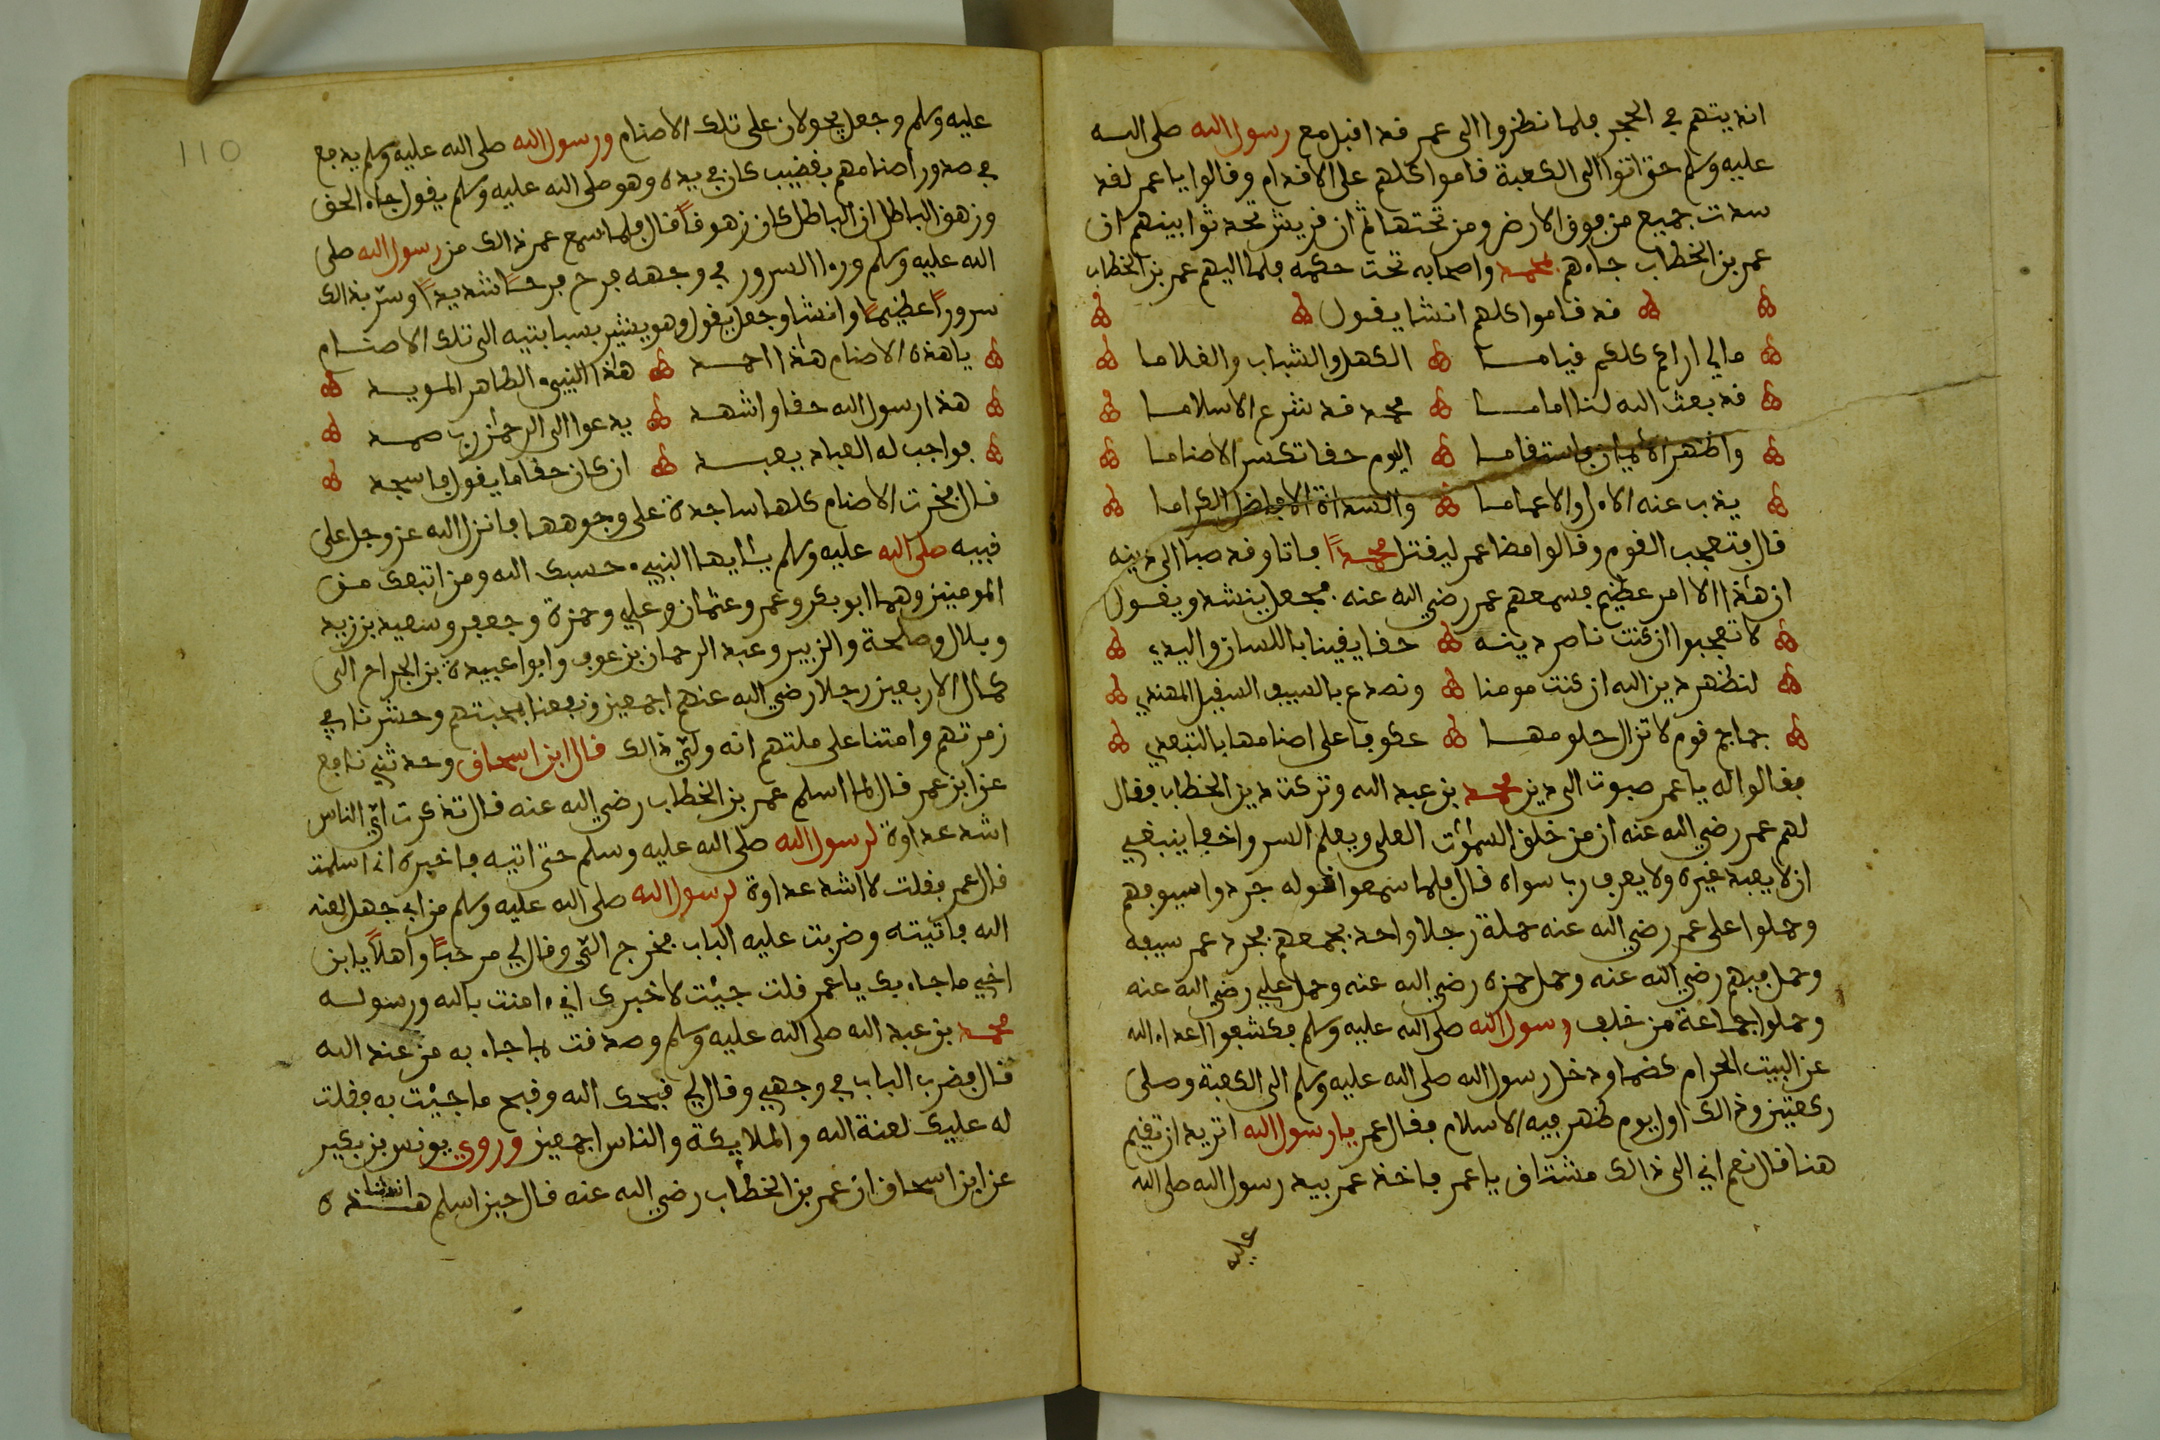 انديتهم في الحجر فلما نظروا الى عمر قد اقبل مع رسول الله صلى الله
عليه وسلم حتى اتوا الى الكعبة قاموا كلهم على الاقدام وقالوا يا عمر لقد
سدت جميع من فوق الارض ومن تحتها ثم ان قريش تحدثوا بينهم ان
عمر بن الخطاب جاءهم بمحمد واصحابه تحت حكمه فلما اليهم عمر بن الخطاب
قد قاموا كلهم انشا يقول
مالي اراكم كلكم قياما الكهل والشباب والغلاما
قد بعث الله لنا اماما محمد قد شرع الاسلاما
واظهر الايمان فاستقاما اليوم حقا تكسر الاصناما
يذب عنه الاول والاعماما والسداة الافاضل الكراما
قال فتعجب القوم وقالوا مضا عمر ليقتل محمدًا فاتا وقد صبا الى دينه
ان هذا الامر عظيم فسمعهم عمر رضي الله عنه فجعل ينشد ويقول
لا تعجبوا ان كنت ناصر دينه حقا يقينا باللسان واليدي
لنظهر دين الله ان كنت مومنا ونصدع بالسيف السقيل المهندي
جماجم قوم لا تزال حلومها عكوفا على اصنامها بالتبعدي
فقالوا له يا عمر صبوت الى دين محمد بن عبد الله وتركت دين الخطاب فقال
لهم عمر رضي الله عنه ان من خلق السموت العلى ويعلم السر واخفا ينبغي
ان لا يعبد غيره ولا يعرف ربا سواه قال فلما سمعوا قوله جردوا سيوفهم
وحملوا على عمر رضي الله عنه حملة رجلا واحد بجمعهم فجرد عمر سيفه
وحمل فيهم رضي الله عنه وحمل حمزه رضي الله عنه وحمل علي رضي الله عنه
وحملوا جماعة من خلف رسول الله صلى الله عليه وسلم فكشفوا اعداء الله
عن البيت الحرام كضما ودخل رسول الله صلى الله عليه وسلم الى الكعبة وصلى
ركعتين وذالك اول يوم ظهر فيه الاسلام فقال عمر يا رسول الله اتريد ان تقيم
هنا قال نعم اني الى ذالك مشتاق يا عمر فاخذ عمر بيد رسول الله صلى الله
عليه
110
عليه وسلم وجعل يجولان على تلك الاصنام ورسول الله صلى الله عليه وسلم يدفع
في صدور اصنامهم بقضيب كان في يده وهو صلى الله عليه وسلم يقول جاء الحق
وزهق الباطل ان الباطل كان زهوقًا قال فلما سمع عمر ذالك من رسول الله صلى
الله عليه وسلم وراا السرور في وجهه فرح فرحًا شديدًا وسر بذالك
سرورًا عظيمًا وانشا وجعل يقول وهو يشير بسبابتيه الى تلك الاصنام
يا هذه الاصنام هذا احمد هذا النبي الطاهر المويد
هذا رسول الله حقا واشهد يدعوا الى الرحمن رب صمد
فواجب له العباد يعبد ان كان حقا ما يقول فاسجد
قال فخرت الاصنام كلها ساجدة على وجوهها فانزل الله عز وجل على
نبيه صلى الله عليه وسلم يـايها النبي حسبك الله ومن اتبعك من
المومنين وهما ابو بكر وعمر وعثمان وعلي وحمزة وجعفر وسعيد بن زيد
وبلال وطلحة والزبير وعبد الرحمان بن عوف وابوا عبيدة بن الجراح الى
كمال الاربعين رجلا رضي الله عنهم اجمعين ونفعنا بمحبتهم وحشرنا في
زمرتهم وامتنا على ملتهم انه ولي ذالك قال ابن اسحاق وحدثني نافع
عن ابن عمر قال لما اسلم عمر بن الخطاب رضي الله عنه قال تذكرت اي الناس
اشد عداوة لرسول الله صلى الله عليه وسلم حتى اتيه فاخبره اني اسلمت
قال عمر فقلت لا اشد عداوة لرسول الله صلى الله عليه وسلم من ابي جهل لعنه
الله فاتيته وضربت عليه الباب فخرج الي وقال لي مرحبًا واهلًا يابن
اخي ما جاء بك يا عمر قلت جيت لاخبرك اني ءامنت بالله ورسوله
محمد بن عبد الله صلى الله عليه وسلم وصدقت بما جاء به من عند الله
قال فضرب الباب في وجهي وقال لي قبحك الله وقبح ما جيت به فقلت
له عليك لعنة الله والملايكة والناس اجمعين وروي يونس بن بكير
عن ابن اسحاق ان عمر بن الخطاب رضي الله عنه قال حين اسلم هذه